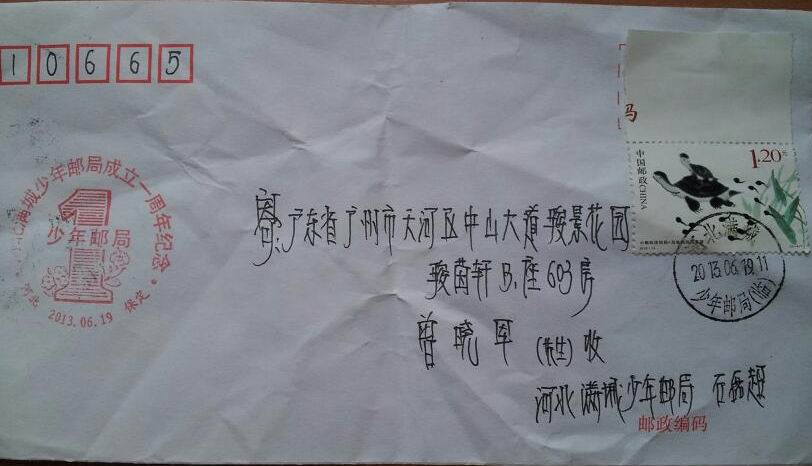 10665
河北满城少年邮局成立一周年纪念
1
少年邮局
河北 保定
2013.06.19
码
1.20元
中国邮政CHINA
河北满城
2013.06.19.11
少年邮局(临)
寄:广东省广州市天河区中山大道骏景花园
骏茵轩B1座603房
曾晓军 (先生) 收
河北满城少年邮局 石磊超
邮政编码